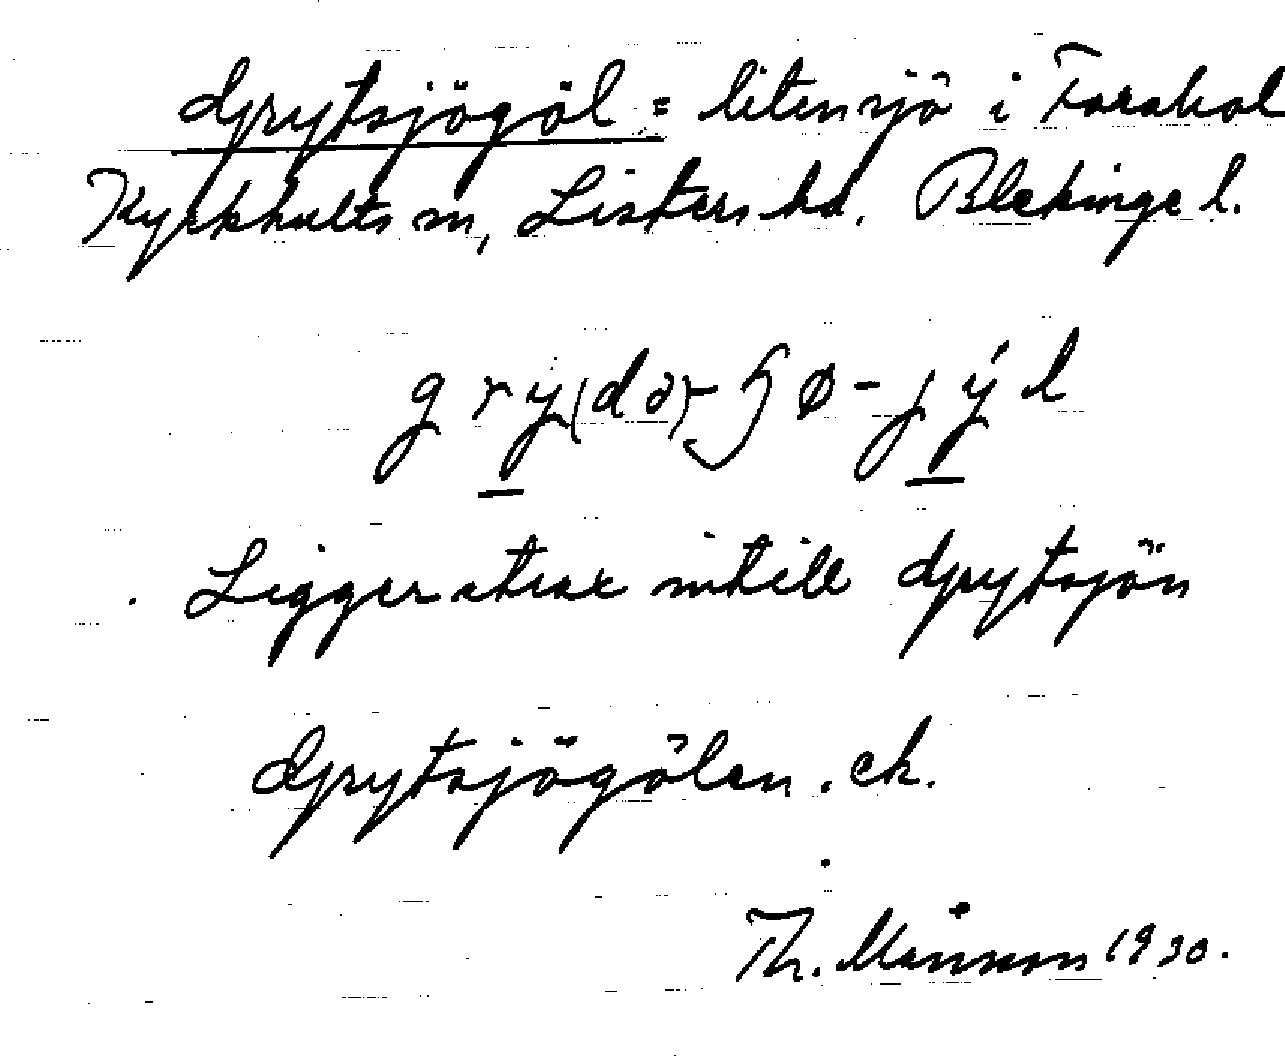 Grytsjögöl = liten sjö i Farabol
Kyrkhults sn, Listers hd. Blekinge l.
gry(dər)-ɧø-jýl
Ligger strax intill Grytsjön
Grytsjögölen. ek.
Th. Månsson 1930.